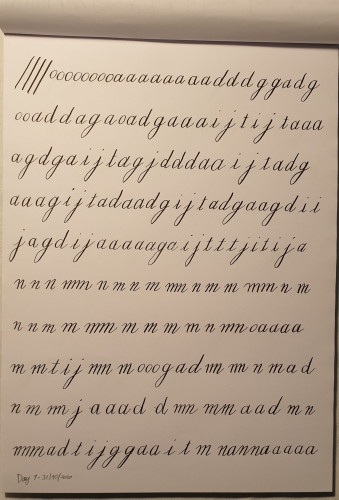 ////ooooooooaaaaaaaadddggadg
ooaddagaoadgaaaijtijtaaa
agdgaijtagjdddaaijtadg
aaagijtadaadgijtadgaagdii
jagdijaaaaagaijtttjitija
n n n mm n m n m mm n m m mm n m
n n m m mm m m m m n mn oaaaa
m m t i j mm m ooogad m m n m a d
n m m j a a a d d mn mm a a d m n
mmmadtijggaait m nannaaaaa
Day 1 - 31/10/2020